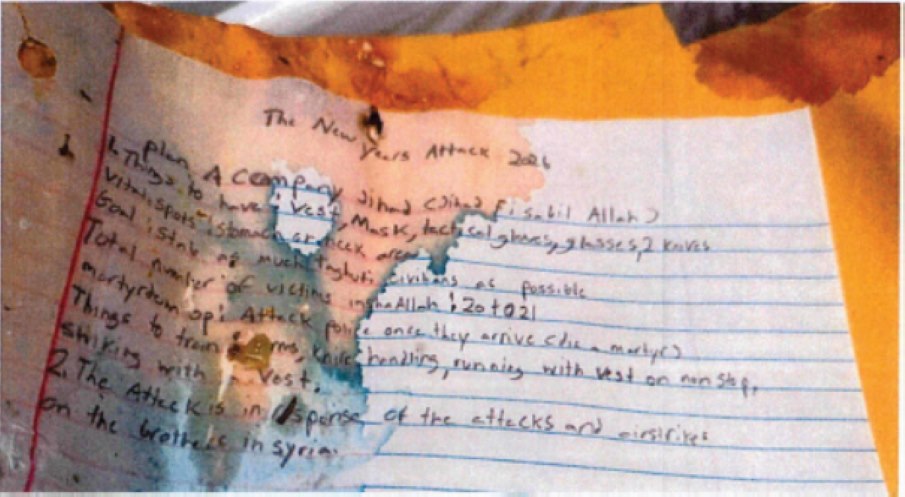 The New
Years Attack 2026
plan A company Jihad (Jihad fi sabil Allah)
1. Things to have: vest, Mask, tactical gloves, glasses, 2 knives
vital spots: stomach or neck area
Goal: stab as much taghuti civilians as possible
Total number of victims inshaAllah: 20 to 21
martyrdum op: Attack police once they arrive (die a martyr)
Things to train: arms, knife handling, running with vest on non stop,
striking with a vest.
2. The Attack is in of the attacks and airstrikes
on the brothers in syria.